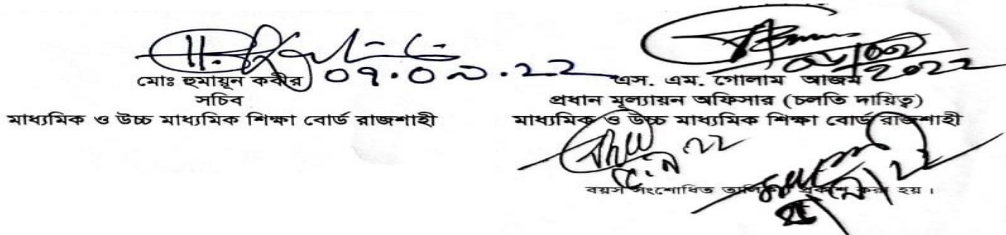 মোঃ হুমায়ুন কবীর
০৭.০৯.২২
সচিব
মাধ্যমিক ও উচ্চ মাধ্যমিক শিক্ষা বোর্ড রাজশাহী
এস. এম. গোলাম আজম
2022
প্রধান মূল্যায়ন অফিসার (চলতি দায়িত্ব)
মাধ্যমিক ও উচ্চ মাধ্যমিক শিক্ষা বোর্ড রাজশাহী
২২
বয়স সংশোধিত তালিকা প্রকাশ করা হয়।